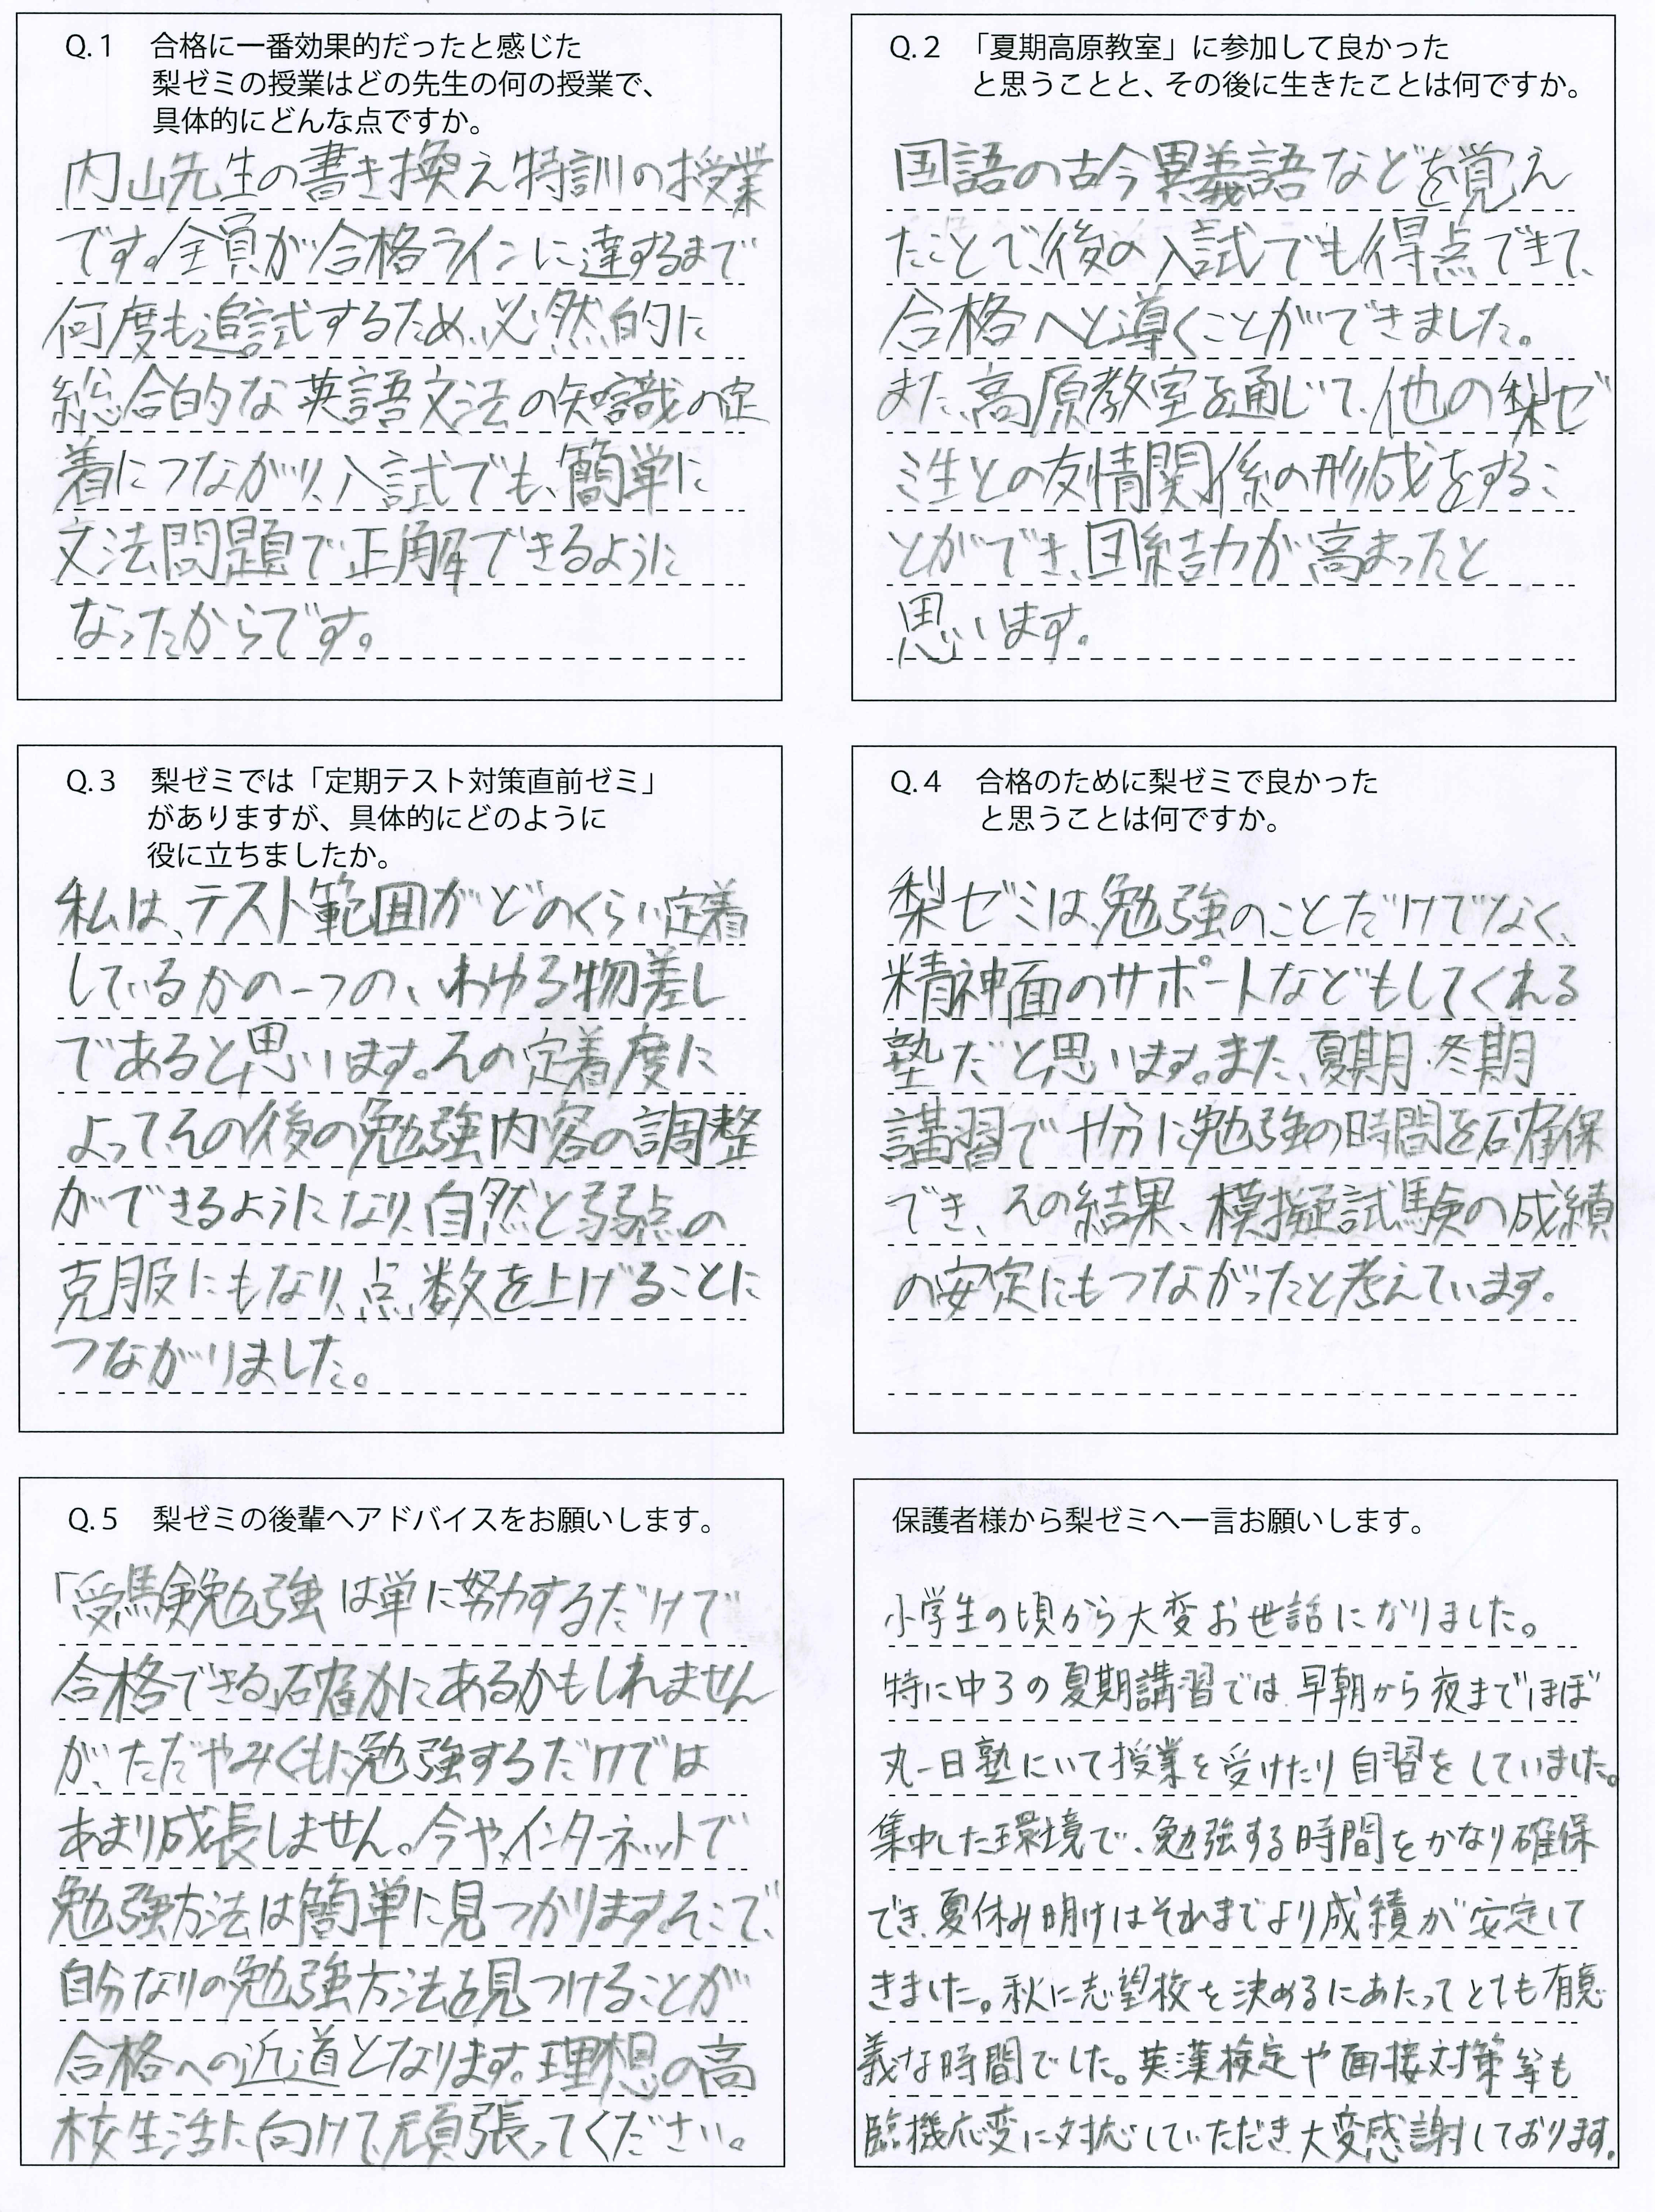 Q.1 合格に一番効果的だったと感じた
梨ゼミの授業はどの先生の何の授業で、
具体的にどんな点ですか。
内山先生の書き換え特訓の授業
です。全員が合格ラインに達するまで
何度も追試するため、必然的に
総合的な英語文法の知識の定
着につながり、入試でも、簡単に
文法問題で正解できるように
なったからです。
Q.2 「夏期高原教室」に参加して良かった
と思うことと、その後に生きたことは何ですか。
国語の古今異義語などを覚え
たことで、後の入試でも得点できて、
合格へと導くことができました。
また、高原教室を通じて、他の梨ゼ
ミ生との友情関係の形成をするこ
とができ、団結力が高まったと
思います。
Q.3 梨ゼミでは「定期テスト対策直前ゼミ」
がありますが、具体的にどのように
役に立ちましたか。
私は、テスト範囲がどのくらい定着
しているかの一つの、いわゆる物差し
であると思います。その定着度に
よってその後の勉強内容の調整
ができるようになり、自然と弱点の
克服にもなり、点数を上げることに
つながりました。
Q.4 合格のために梨ゼミで良かった
と思うことは何ですか。
梨ゼミは、勉強のことだけでなく、
精神面のサポートなどもしてくれる
塾だと思います。また、夏期・冬期
講習で十分に勉強の時間を確保
でき、その結果、模擬試験の成績
の安定にもつながったと考えています。
Q.5 梨ゼミの後輩へアドバイスをお願いします。
「受験勉強は単に努力するだけで
合格できる」確かにあるかもしれません
が、ただやみくもに勉強するだけでは
あまり成長しません。今や、インターネットで
勉強方法は簡単に見つかります。そこで、
自分なりの勉強方法を見つけることが
合格への近道となります。理想の高
校生活に向けて、頑張ってください。
保護者様から梨ゼミへ一言お願いします。
小学生の頃から大変お世話になりました。
特に中3の夏期講習では、早朝から夜までほぼ
丸一日塾にいて授業を受けたり自習をしていました。
集中した環境で、勉強する時間をかなり確保
でき、夏休み明けはそれまでより成績が安定して
きました。秋に志望校を決めるにあたってとても有意
義な時間でした。英漢検定や面接対策等も
臨機応変に対応していただき、大変感謝しております。